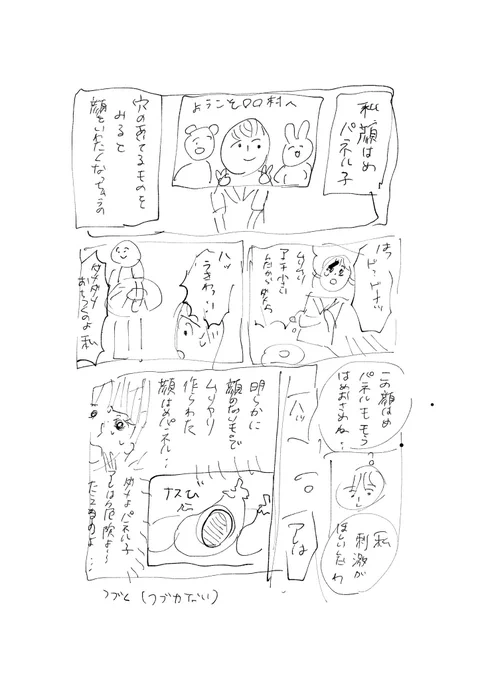 私、顔はめ
パネル子
ようこそ○○村へ
穴のあいてるものを
みると
顔をいれたくなっちゃうの
はっ
ドーナッツ
ムリムリ
ハッ
うきわっ…!
ダメダメ
おちつくのよ私
この顔はめ
パネルももう
はめおさめね…
私
刺激が
ほしいんだわ
ハッ
アレは
明らかに
顔のないもので
ムリヤリ
作られた
顔はめパネル…
ナスび
ダメよパネル子
アレは危険よ…
たえるのよ…
つづく(つづかない)